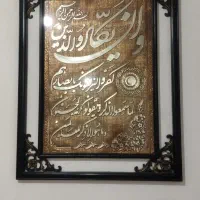 بسم الله الرحمن الرحیم
وان یکاد الذین
کفروا لیزلقونک بابصارهم
لما سمعوا الذکر و یقولون انه لمجنون
و ما هو الا ذکر للعالمین